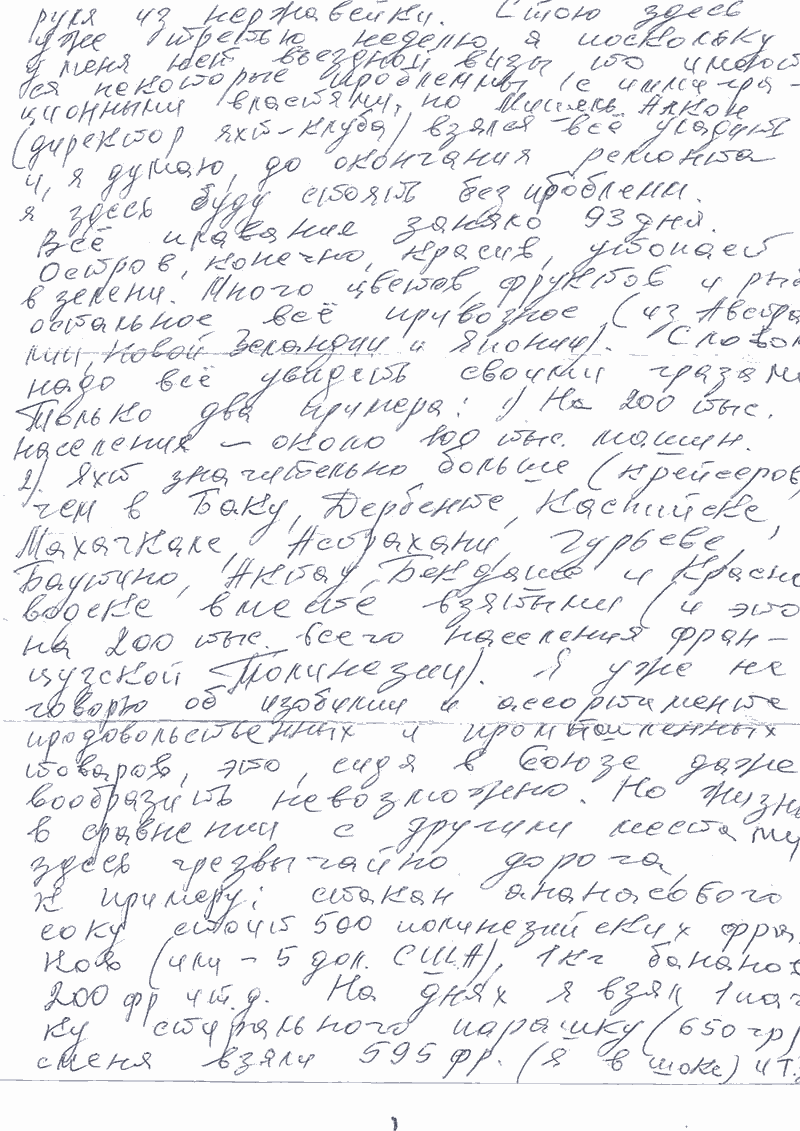 руля из нержавейки. Стою здесь
уже третью неделю я поскольку
у меня нет въездной визы то имеют
ся некоторые проблеммы (с иммигра-
ционными властями, но Мишель Алкон
(директор яхт-клуба) взялся всё уладить
и, я думаю, до окончания ремонта
я здесь буду стоять без проблемм.
Всё плавание заняло 93 дня.
Остров, конечно, красив, утопает
в зелени. Много цветов, фруктов и рыб
остальное всё привозное (из Австра
лии, Новой Зеландии и Японии). Словом
надо всё увидеть своими глазами
Только два примера: 1) На 200 тыс.
населения – около 100 тыс. машин.
2). Яхт значительно больше (крейсеров,
чем в Баку, Дербенте, Каспийске,
Махачкале, Астрахани, Гурьеве,
Баутино, Актау, Бекдаше и Красно
водске вместе взятыми (и это
на 200 тыс. всего населения фран-
цузской Полинезии). Я уже не
говорю об изобилии и ассортименте
продовольственных и промышленных
товаров, это, сидя в Союзе даже
вообразить невозможно. Но жизнь
в сравнении с другими местами
здесь чрезвычайно дорога,
К примеру: стакан ананасового
соку стоит 500 полинезийских фран
ков (или – 5 дол. США), 1 кг банано
200 фр и т.д. На днях я взял 1 пач
ку стирального парашку (650 гр)
с меня взяли 595 фр. (Я в шоке) и т.